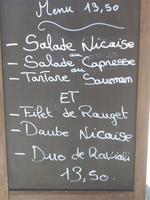 Menu 13,50
- Salade Nicoise
ou
- Salade Capresse
ou
- Tartare Saumon
ET
- Filet de Rouget
- Daube Nicoise
- Duo de Raviolis
13,50.